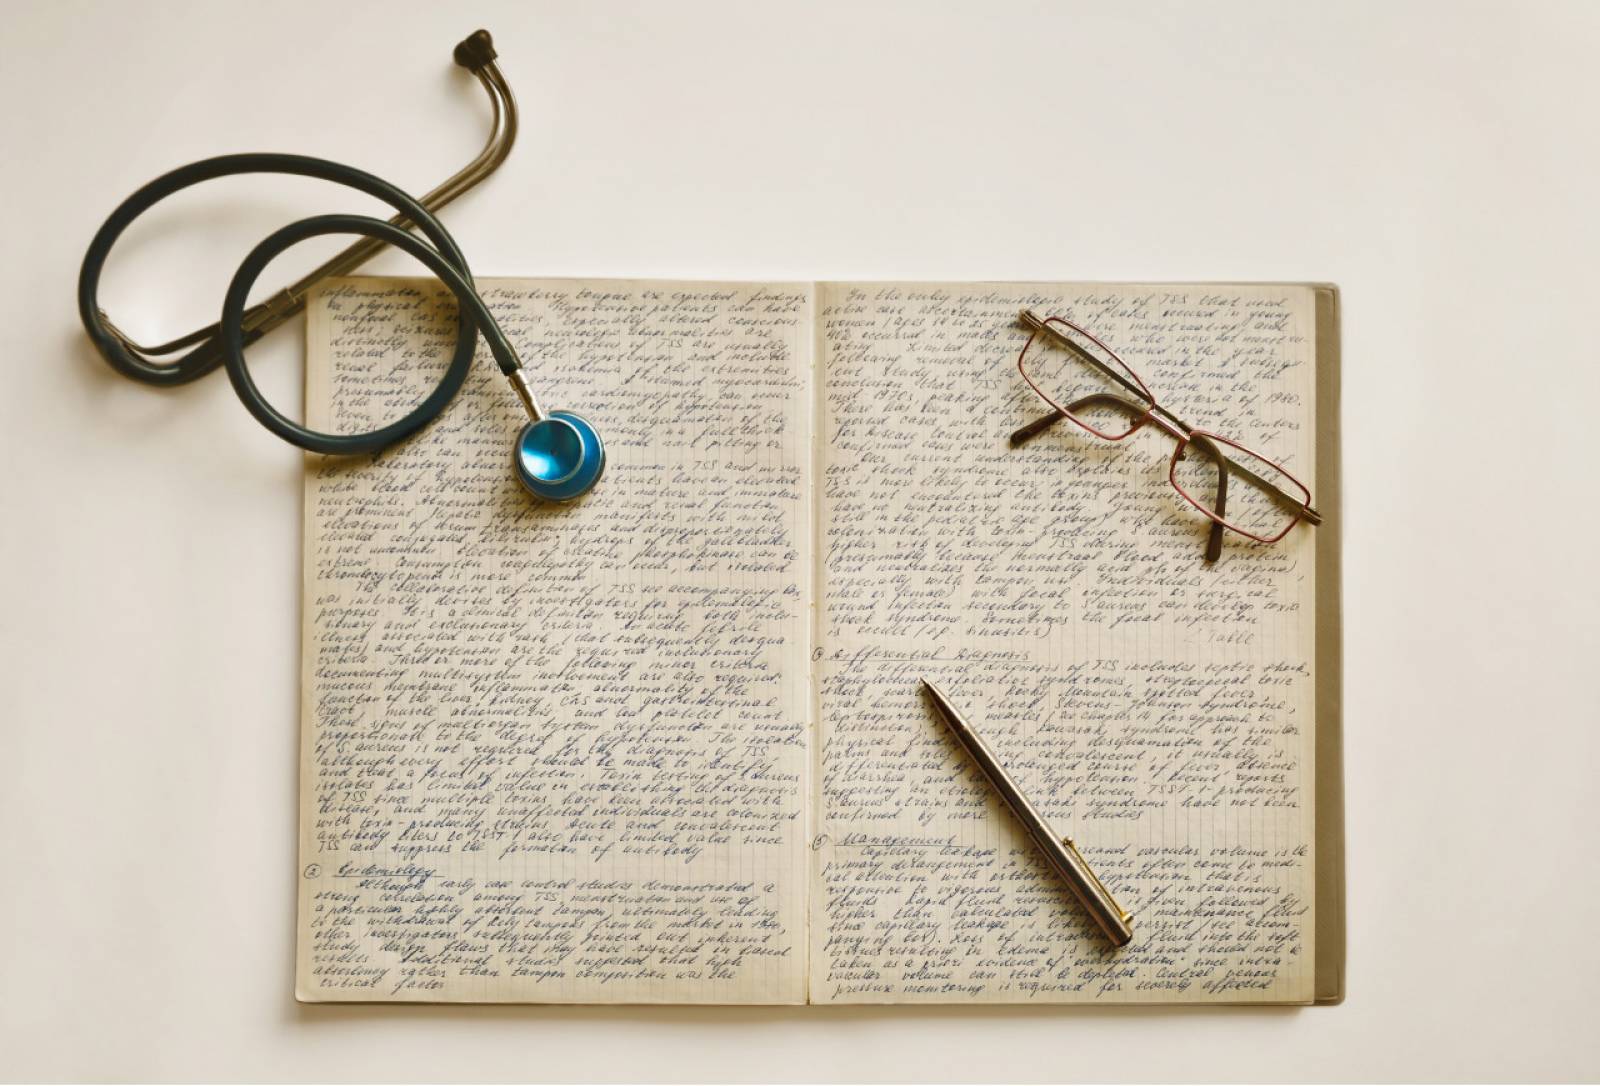 inflammation strawberry tongue are expected findings
physical Hypotensive patients can have
nonfocal CNS especially altered conscious-
ness, seizures neurologic abnormalities are
distinctly Complications of TSS are usually
related to the of the hypotension and include
renal failure and ischemia of the extremities
sometimes gangrene. A
presumably cardiomyopathy, can occur
in the or correction of hypotension
desquamation of the
digits and soles in a full thick
manner and nail pitting or
also can occur
laboratory common in TSS and mirror
the severity of hypotension patients have an elevated
white blood cell count with in mature and immature
neutrophils. Abnormalities and renal function
are prominent. Hepatic dysfunction manifests with mild
elevations of serum transaminases and disproportionately
elevated conjugated bilirubin; hydrops of the gallbladder
is not uncommon. Elevation of creatine phosphokinase can be
extreme. Consumption coagulopathy can occur, but isolated
thrombocytopenia is more common
The collaborative definition of TSS accompanying
was initially devised by investigators for epidemiologic
purposes. It is a clinical definition requiring both inclu-
sionary and exclusionary criteria. An acute febrile
illness associated with rash (that subsequently desqua-
mates) and hypotension are the required inclusionary
criteria. Three or more of the following minor criteria
documenting multisystem involvement are also required:
mucous membrane inflammation abnormality of the
function of the liver, kidney, CNS and gastrointestinal
tract, muscle abnormalities and low platelet count
These signs of multiorgan system dysfunction are usually
proportionate to the degree of hypotension. The isolation
of S. aureus is not required for the diagnosis of TSS
although every effort should be made to identify
and treat a focus of infection. Toxin testing of S. aureus
isolates has limited value in establishing the diagnosis
of TSS since multiple toxins have been associated with
disease, and many unaffected individuals are colonized
with toxin-producing strains. Acute and convalescent
antibody titers to TSST-1 also have limited value since
TSS can suppress the formation of antibody
② Epidemiology
Although early case control studies demonstrated a
strong correlation among TSS, menstruation and use of
a particular highly absorbent tampon ultimately leading
to the withdrawal of Rely tampons from the market in 1980,
other investigators subsequently pointed out inherent
study design flaws that may have resulted in biased
results. Additional studies suggested that high
absorbency rather than tampon composition was the
critical factor
In the only epidemiologic study of TSS that used
active case ascertainment of cases occurred in young
women (ages 14 to 25 years) menstruating and
40% occurred in males and females who were not menstru-
ating. Limited decrease occurred in the year
following removal of Rely from the market. A subsequ-
ent study using the same confirmed the
conclusion that TSS had begun increase in the
mid 1970s, peaking after the hysteria of 1980.
There has been a continued trend in
reported cases with less to the Centers
for Disease Control and Prevention in of
confirmed cases were nonmenstrual
Our current understanding of the of
toxic shock syndrome also explains its
TSS is more likely to occur in younger individuals
have not encountered the toxins previously and thus
have no neutralizing antibody. Young women (often
still in the pediatric age group) who have vaginal
colonization with toxin-producing S. aureus
higher risk of developing TSS during menstruation
presumably because menstrual blood adds protein
and neutralizes the normally acid pH of the vagina),
especially with tampon use. Individuals (either
male or female) with focal infection or surgical
wound infection secondary to S. aureus can develop toxic
shock syndrome. Sometimes the focal infection
is occult (e.g. sinusitis)
Table
Differential Diagnosis
The differential diagnosis of TSS includes septic shock,
staphylococcal exfoliative syndromes, streptococcal toxic
shock, scarlet fever, Rocky Mountain spotted fever,
viral hemorrhagic shock, Stevens-Johnson syndrome,
leptospirosis, measles (see Chapter 14 for approach to
distinction). Though Kawasaki syndrome has similar
physical findings including desquamation of the
palms and soles convalescent, it usually is
differentiated by prolonged course of fever absence
of diarrhea, and of hypotension. Recent reports
suggesting an etiologic link between TSST-1-producing
S. aureus strains and Kawasaki syndrome have not been
confirmed by more studies
⑤ Management
Capillary leakage and vascular volume is the
primary derangement in TSS patients often come to medi-
cal attention with hypotension that is
responsive to vigorous administration of intravenous
fluids. Rapid fluid is given followed by
higher than calculated maintenance fluid
since capillary leakage is likely to persist
Loss of fluid into the soft
tissues resulting in edema is expected and should not be
taken as a priori evidence of "overhydration" since intra-
vascular volume can still be depleted. Central venous
pressure monitoring is required for severely affected